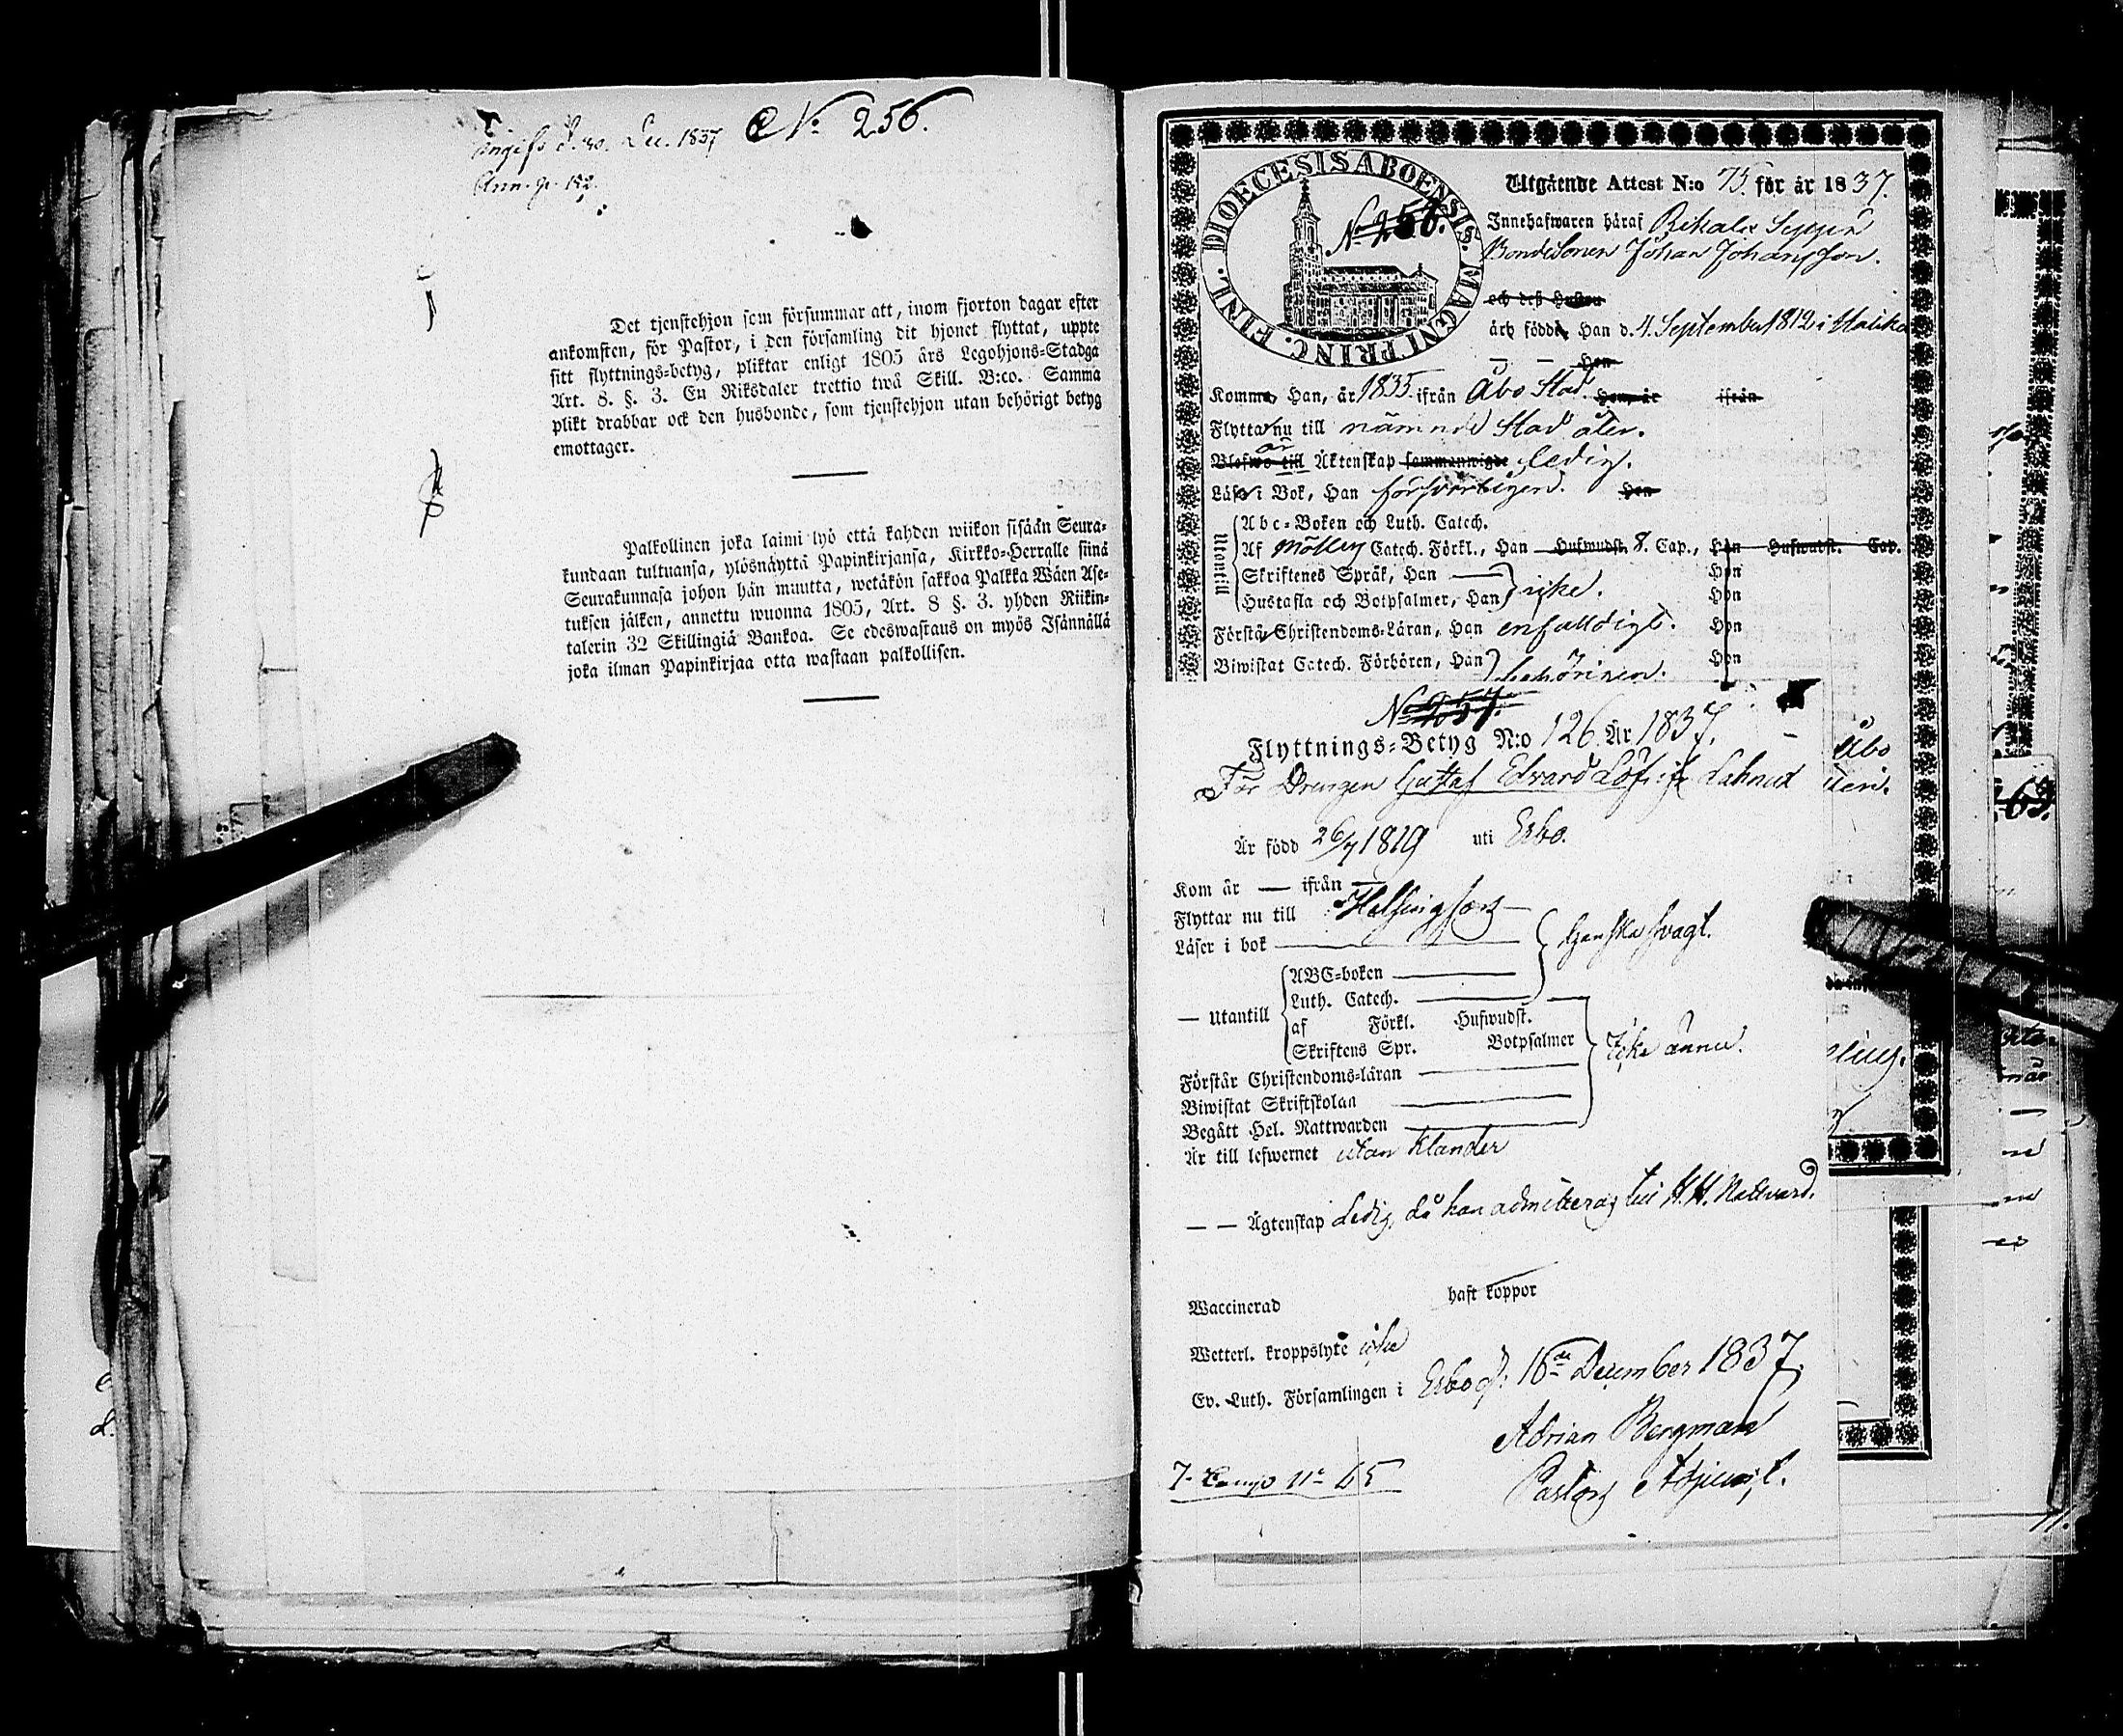 Ingifs d. 30. Dec. 1837 No 256.
Ann. g. 182.
Det tjenstehjon som försummar att, inom fjorton dagar efter
ankomsten, för Pastor, i den församling dit hjonet flyttat, uppte
sitt flyttnings-betyg, pliktar enligt 1805 års Legohjons-Stadga
Art. 8. §. 3. En Riksdaler trettio twå Skill. B:co. Samma
plikt drabbar ock den husbonde, som tjenstehjon utan behörigt betyg
emottager.
Palkollinen joka laimi lyö että kahden wiikon sisään Seura-
kundaan tultuansa, ylösnäyttä Papinkirjansa, Kirkko-Herralle siinä
Seurakunnasa johon hän muutta, wetäkön sakkoa Palkka Wäen Ase-
tuksen jälken, annettu wuonna 1805, Art. 8 §. 3. yhden Riikin-
talerin 32 Skillingiä Bankoa. Se edeswastaus on myös Isännällä
joka ilman Papinkirjaa otta wastaan palkollisen.
DIOECESIS ABOENSIS. MAGNI PRINC. FINL.
No 256.
Utgående Attest N:o 75. för år 1837.
Innehafwaren häraf
Bondesonen Johan Johansson.
och deß Hustru
är född, Han d. 4 September 1812 i Halikko
Hon
Komma Han, år 1835 ifrån Åbo Stad. Hon, år ifrån
Flytta nu till nämnde Stad åter.
är
Blefwo till Äktenskap sammanwigde ledig.
Läsa i Bok, Han försvarligen. Hon
Utantill
Abc-Boken och Luth. Catech.
Af Möllers Catech. Förkl., Han Hufwudst. 8. Cap., Hon Hufwudst. Cap.
Skriftenes Språk, Han Hon
Hustafla och Botpsalmer, Han icke. Hon
Förstå Christendoms-Läran, Han enfaldigt. Hon
Biwistat Catech. Förhören, Han behörigen. Hon
No 257.
Flyttnings-Betyg N:o 126 År 1837.
För Drengen Gustaf Edvard Löf
Är född 26/7 1819 uti Esbo.
Kom år — ifrån —
Flyttar nu till Helsingfors
Läser i bok ganska svagt.
— utantill
ABC-boken
Luth. Catech.
af Förkl. Hufwudst.
Skriftens Spr. Botpsalmer Icke ännu.
Förstår Christendoms-läran
Biwistat Skriftskolan
Begått Hel. Nattwarden
Är till lefwernet utan klander
— — Ägtenskap Ledig, då han admitteras till H.H. Nattvard.
Waccinerad haft koppor
Wetterl. kroppslyte icke
Ev. Luth. Församlingen i Esbo d: 16de December 1837.
Adrian Bergman
Pastors Adjunct.
Åbo